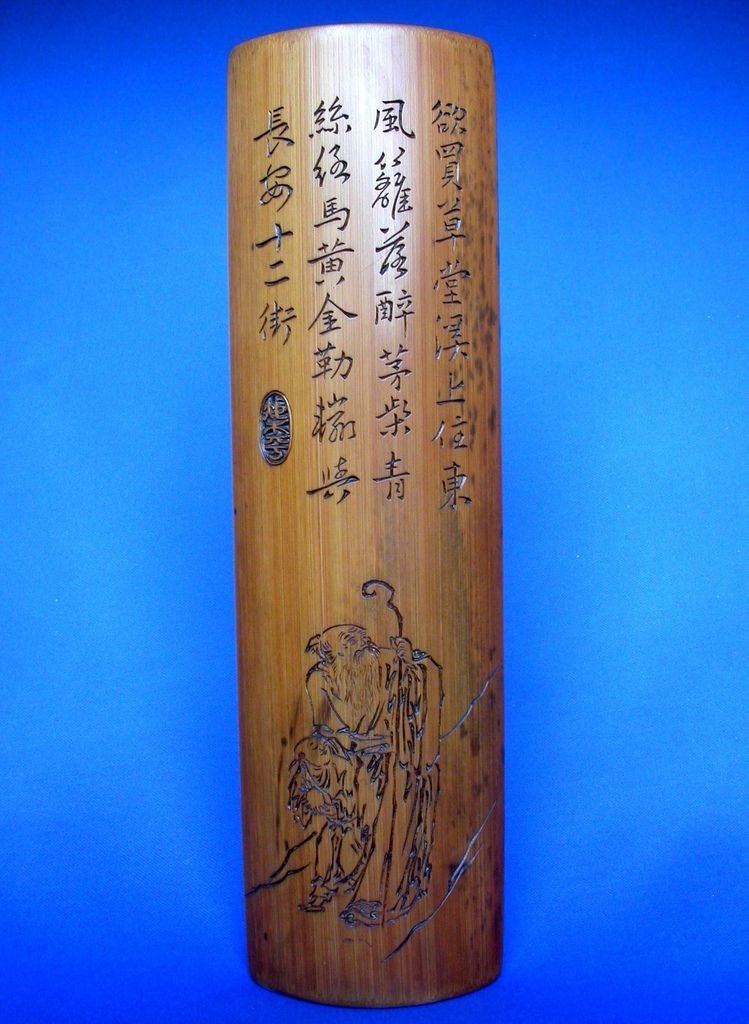 欲買草堂溪上住東
風籬落醉茅柴青
絲絡馬黃金勒輸與
長安十二街